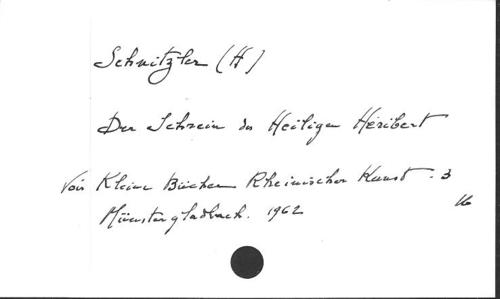 Schnitzler (H)
Der Schrein des Heiligen Heribert
Voir Kleine Bücher Rheinischer Kunst. 3
Münstergladbach. 1962